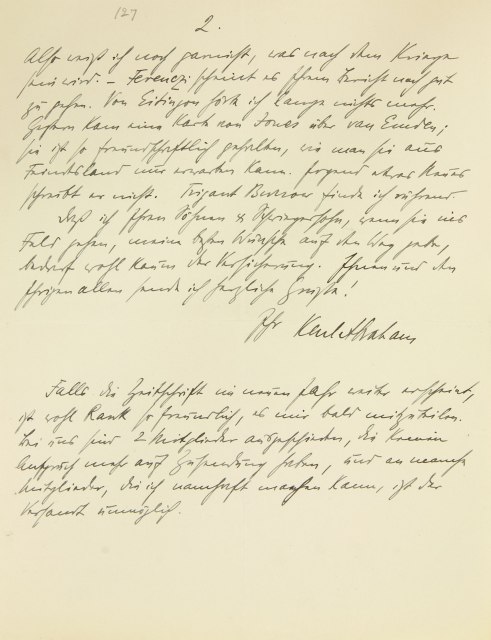 127
2.
Also weiß ich noch garnicht, was nach dem Kriege
sein wird. – Ferenczi scheint es Ihrem Bericht nach gut
zu gehen. Von Eitingon hörte ich lange nichts mehr.
Gestern kam eine Karte von Jones über van Emden;
sie ist so freundschaftlich gehalten, wie man sie aus
Feindesland nur erwarten kann. Irgend etwas Neues
schreibt er nicht. Trigant Burrow finde ich rührend.
Daß ich Ihren Söhnen & Schwiegersohn, wenn sie ins
Feld gehen, meine besten Wünsche auf den Weg gebe,
bedarf wohl kaum der Versicherung. Ihnen und den
Ihrigen allen sende ich herzliche Grüße!
Ihr Karl Abraham
Falls die Zeitschrift im neuen Jahr weiter erscheint,
ist wohl Rank so freundlich, es mir bald mitzuteilen.
Bei uns sind 2 Mitglieder ausgeschieden, die keinen
Anspruch mehr auf Zusendung haben, und an manche
Mitglieder, die ich namhaft machen kann, ist der
Versandt unmöglich.